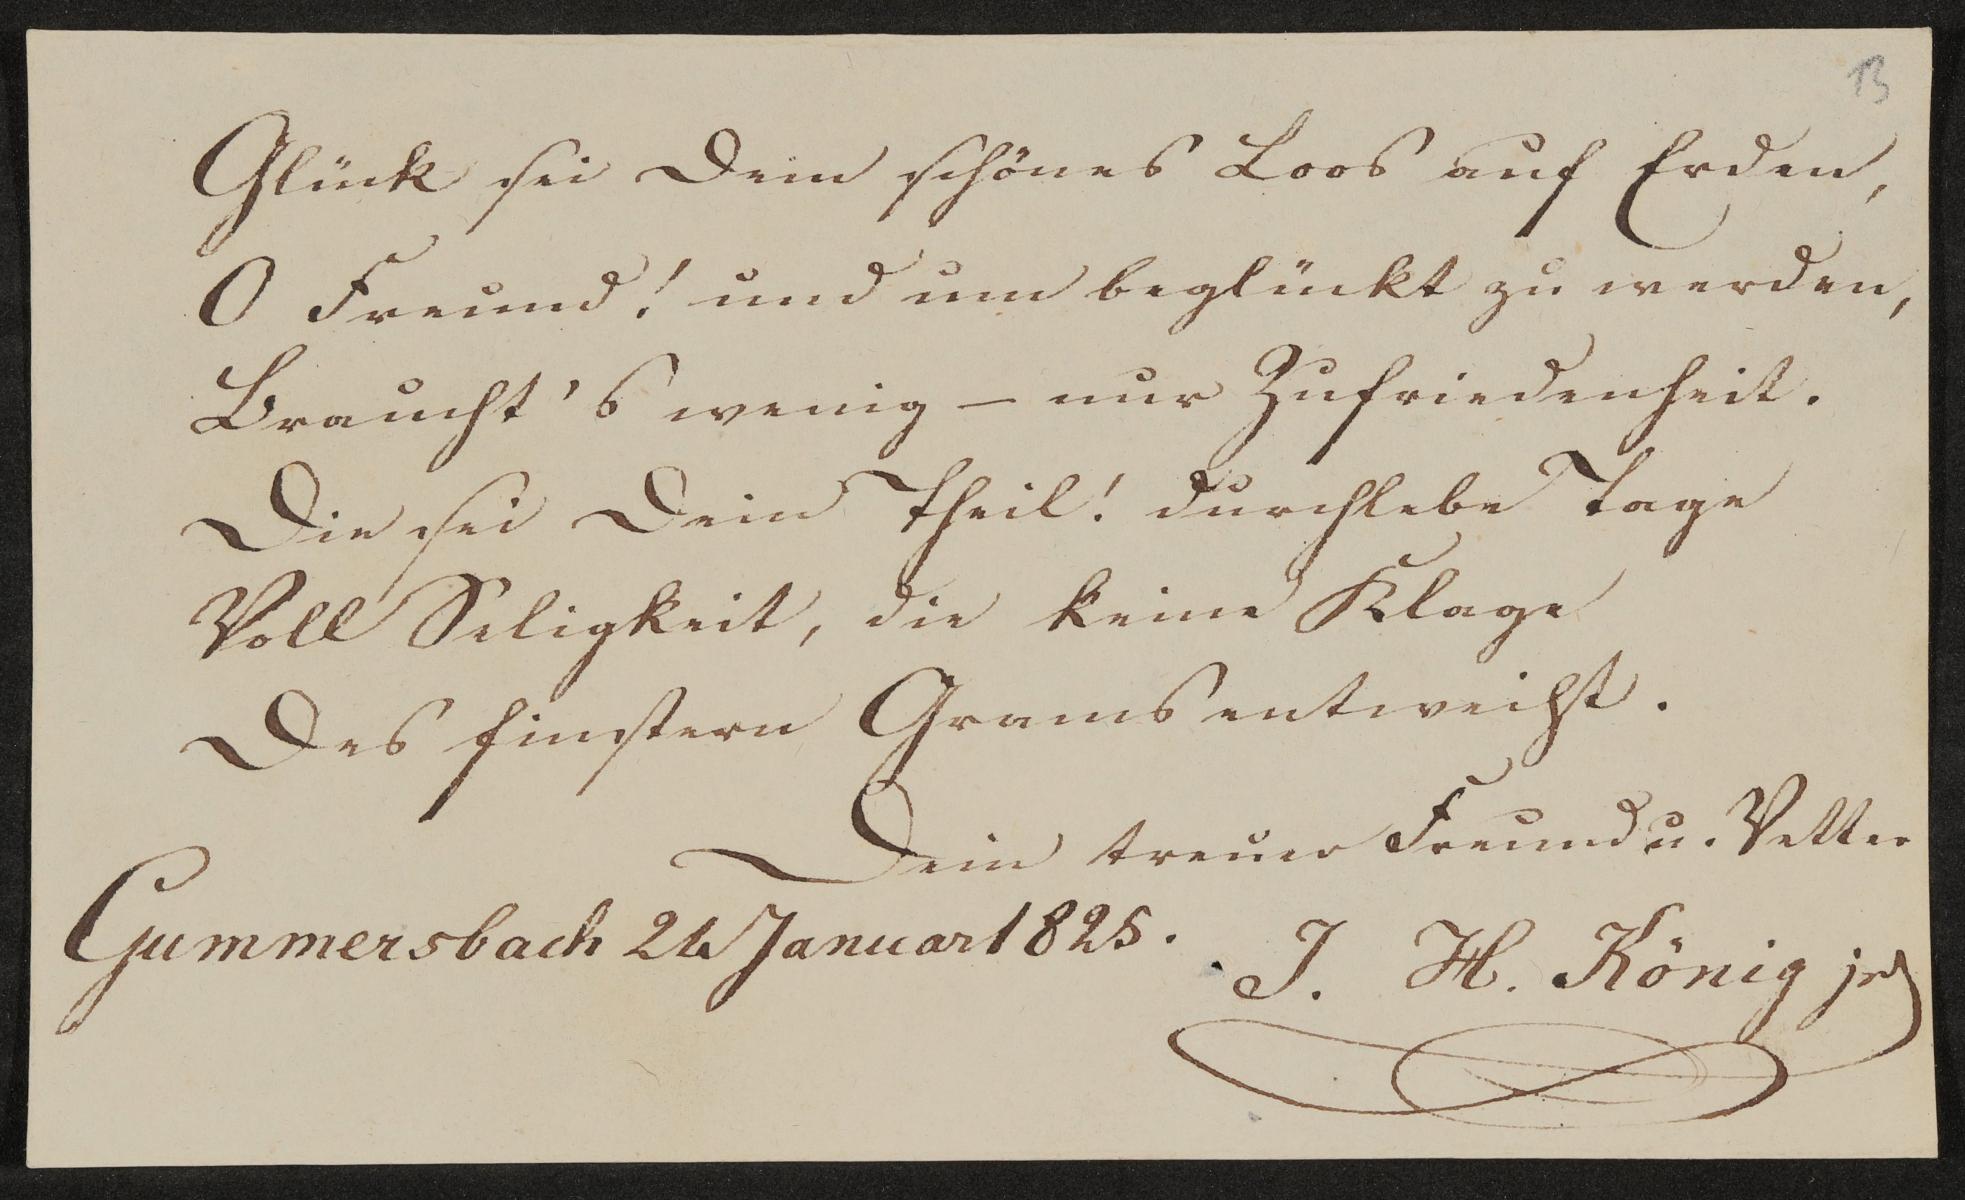 13
Glück sei Dein schönes Loos auf Erden,
O Freund! und um beglückt zu werden,
Braucht's wenig – nur Zufriedenheit.
Die sei Dein Theil! durchlebe Tage
Voll Seligkeit, die keine Klage
Des finstern Grams entweiht.
Dein treuer Freund u. Vetter
Gummersbach 24 Januar 1825.
J. H. König jr